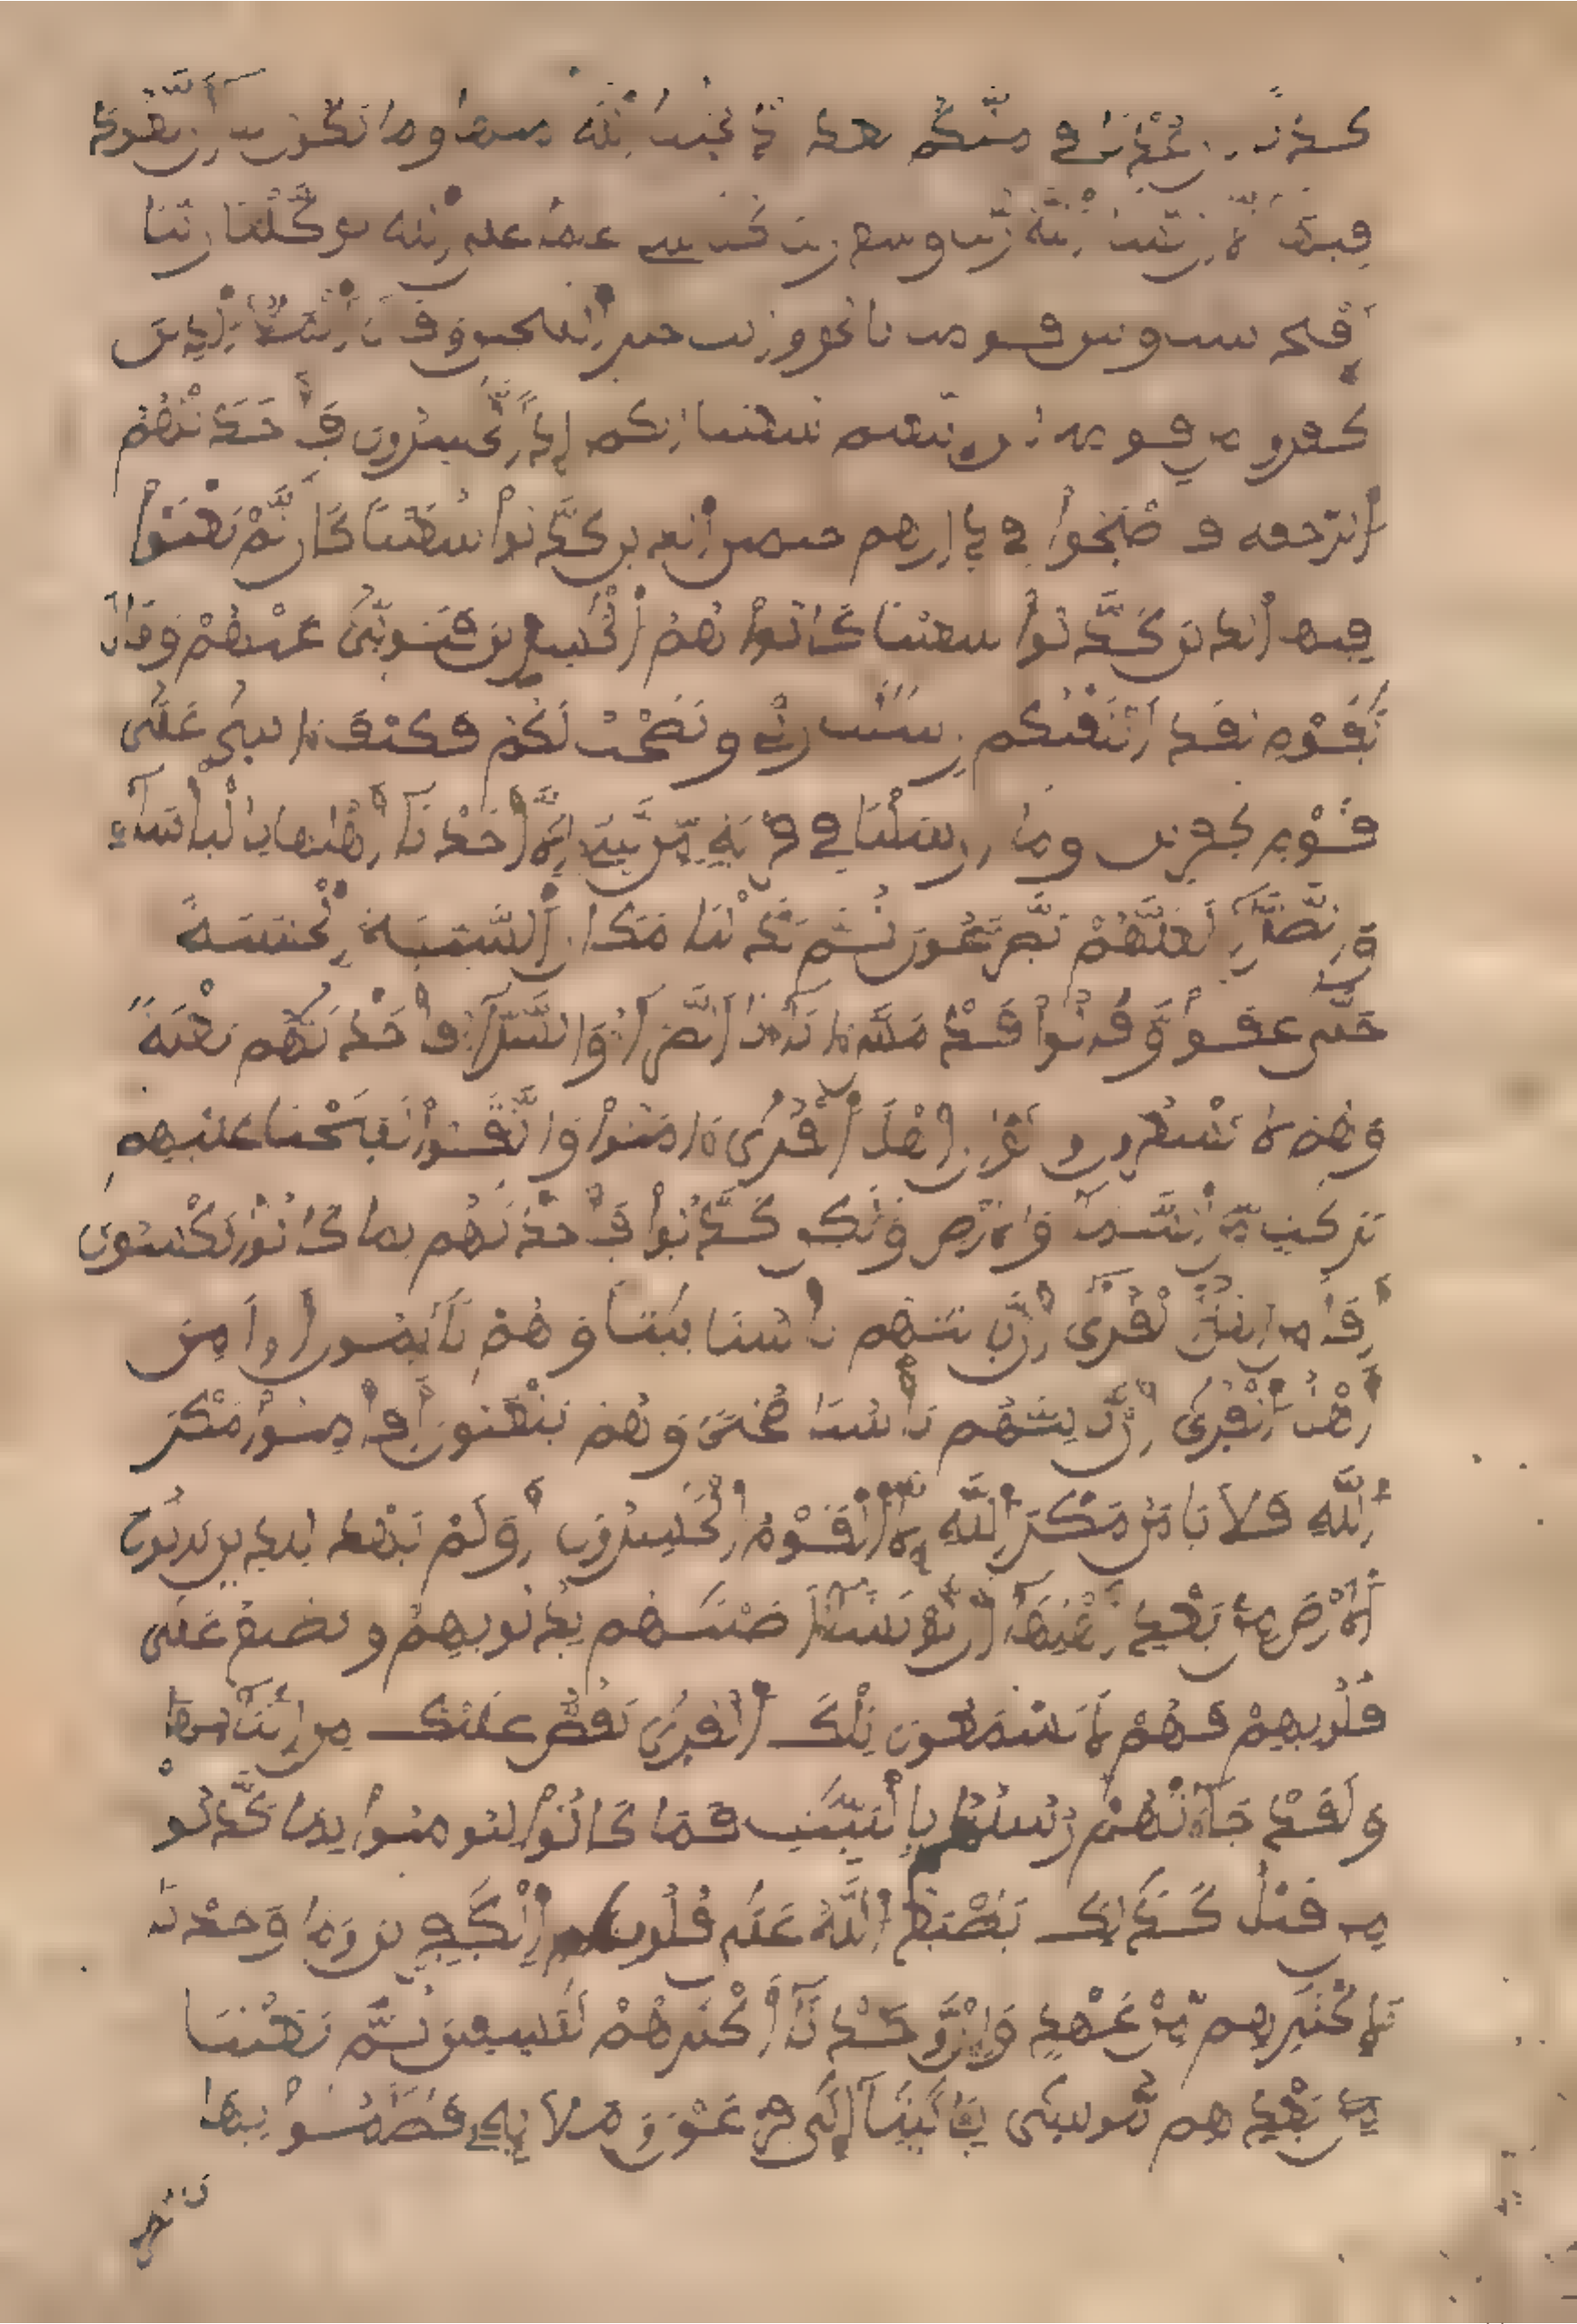 كذبا ان عدنا في ملتكم بعد اذ نجينا الله منها وما يكون لنا ان نعود
فيها الا ان يشاء الله ربنا وسع ربنا كل شيء علما على الله توكلنا ربنا
افتح بيننا وبين قومنا بالحق وانت خير الفتحين وقال الملا الذين
كفروا من قومه لئن اتبعتم شعيبا انكم اذا لخسرون فاخذتهم
الرجفة فاصبحوا في دارهم جثمين الذين كذبوا شعيبا كان لم يغنوا
فيها الذين كذبوا شعيبا كانوا هم الخسرين فتولى عنهم وقال
يقوم لقد ابلغتكم رسلت ربي ونصحت لكم فكيف ءاسى على
قوم كفرين وما ارسلنا في قرية من نبي الا اخذنا اهلها بالباساء
والضراء لعلهم يضرعون ثم بدلنا مكان السيئة الحسنة
حتى عفوا وقالوا قد مس ءاباءنا الضراء والسراء فاخذنهم بغتة
وهم لا يشعرون ولو ان اهل القرى ءامنوا واتقوا لفتحنا عليهم
بركت من السماء والارض ولكن كذبوا فاخذنهم بما كانوا يكسبون
افامن اهل القرى ان ياتيهم باسنا بيتا وهم نايمون او امن
اهل القرى ان ياتيهم باسنا ضحى وهم يلعبون افامنوا مكر
الله فلا يامن مكر الله الا القوم الخسرون اولم يهد للذين يرثون
الارض من بعد اهلها ان لو نشاء اصبنهم بذنوبهم ونطبع على
قلوبهم فهم لا يسمعون تلك القرى نقص عليك من انبائها
ولقد جاءتهم رسلهم بالبينت فما كانوا ليومنوا بما كذبوا
من قبل كذلك يطبع الله على قلوب الكفرين وما وجدنا
لاكثرهم من عهد وان وجدنا اكثرهم لفسقين ثم بعثنا
من بعدهم موسى بايتنا الى فرعون وملايه فظلموا بها